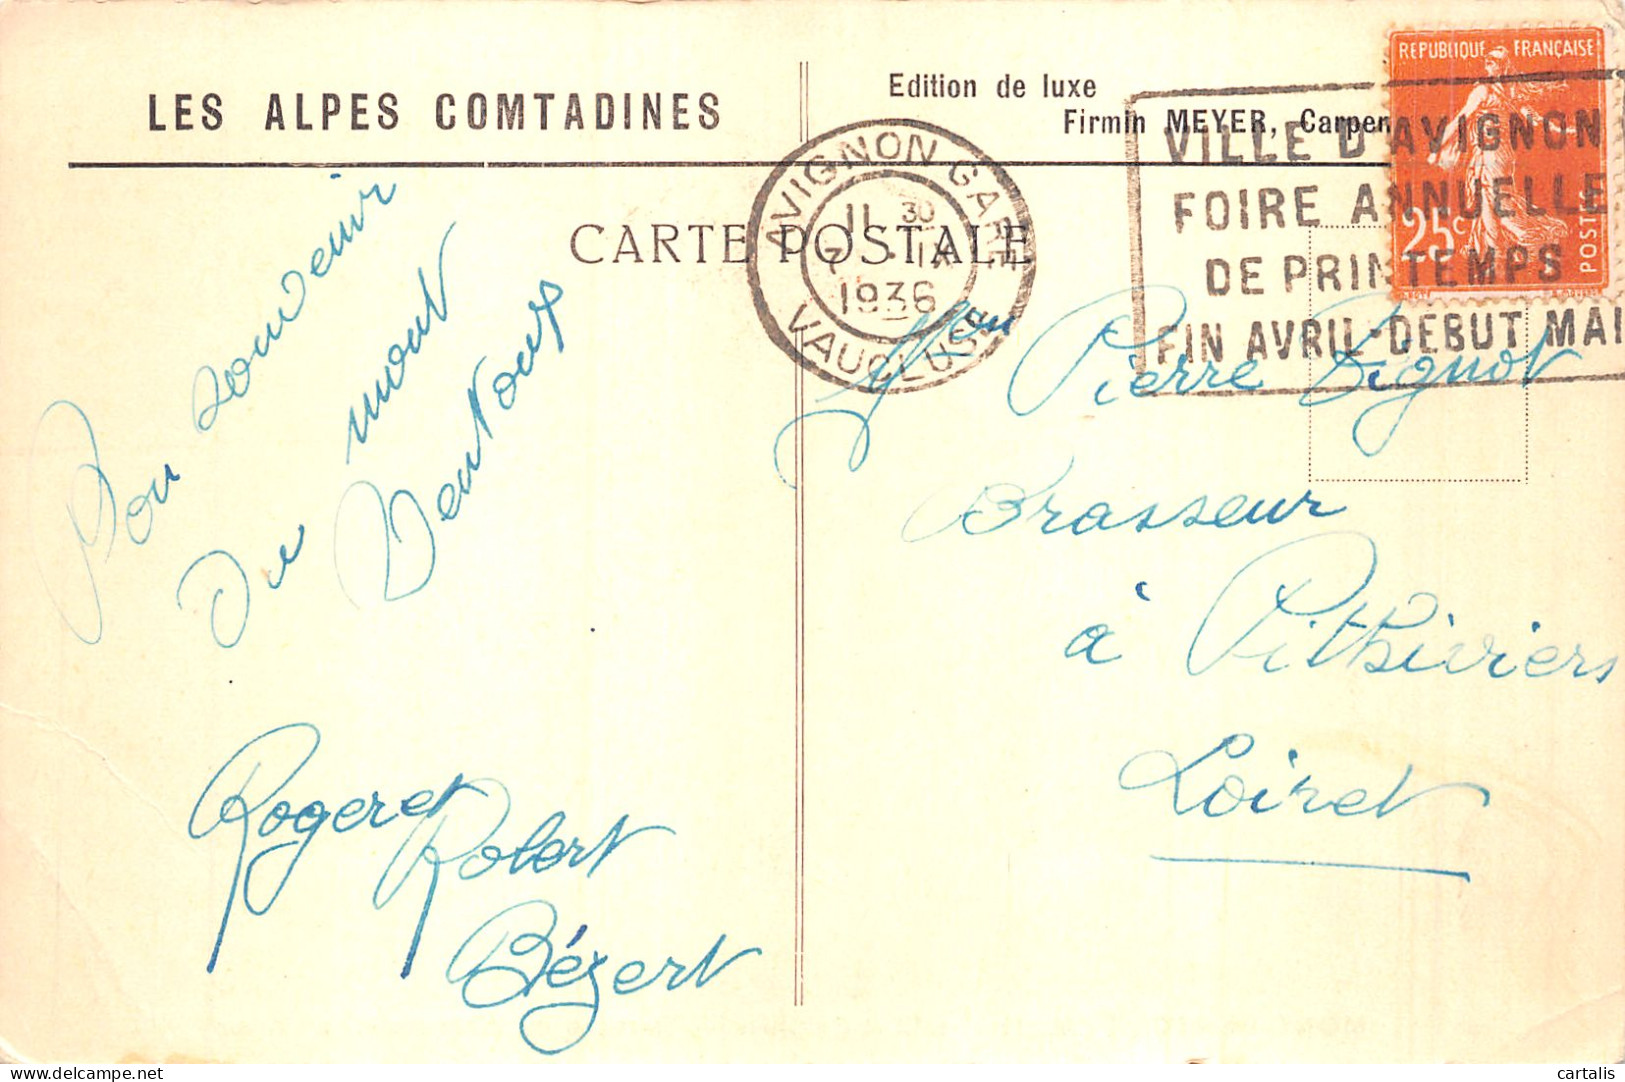 LES ALPES COMTADINES
Edition de luxe
Firmin MEYER, Carpen
CARTE POSTALE
AVIGNON GARE
11 30
7 · IX
1936
VAUCLUSE
VILLE D'AVIGNON
FOIRE ANNUELLE
DE PRINTEMPS
FIN AVRIL-DEBUT MAI
REPUBLIQUE FRANÇAISE
25c
POSTES
Bon souvenir
du mont
Ventoux
Roger et
Robert
Bézert
Pierre Bignot
Brasseur
à Pithiviers
Loiret
cartalis